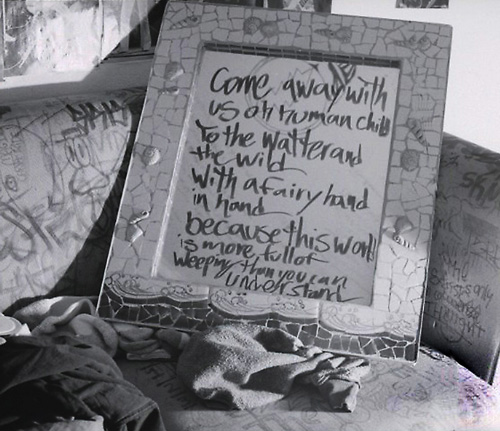 Come away with
us oh human child
To the Watter and
the wild
With a fairy hand
in hand
because this world
is more full of
weeping than you can
understand